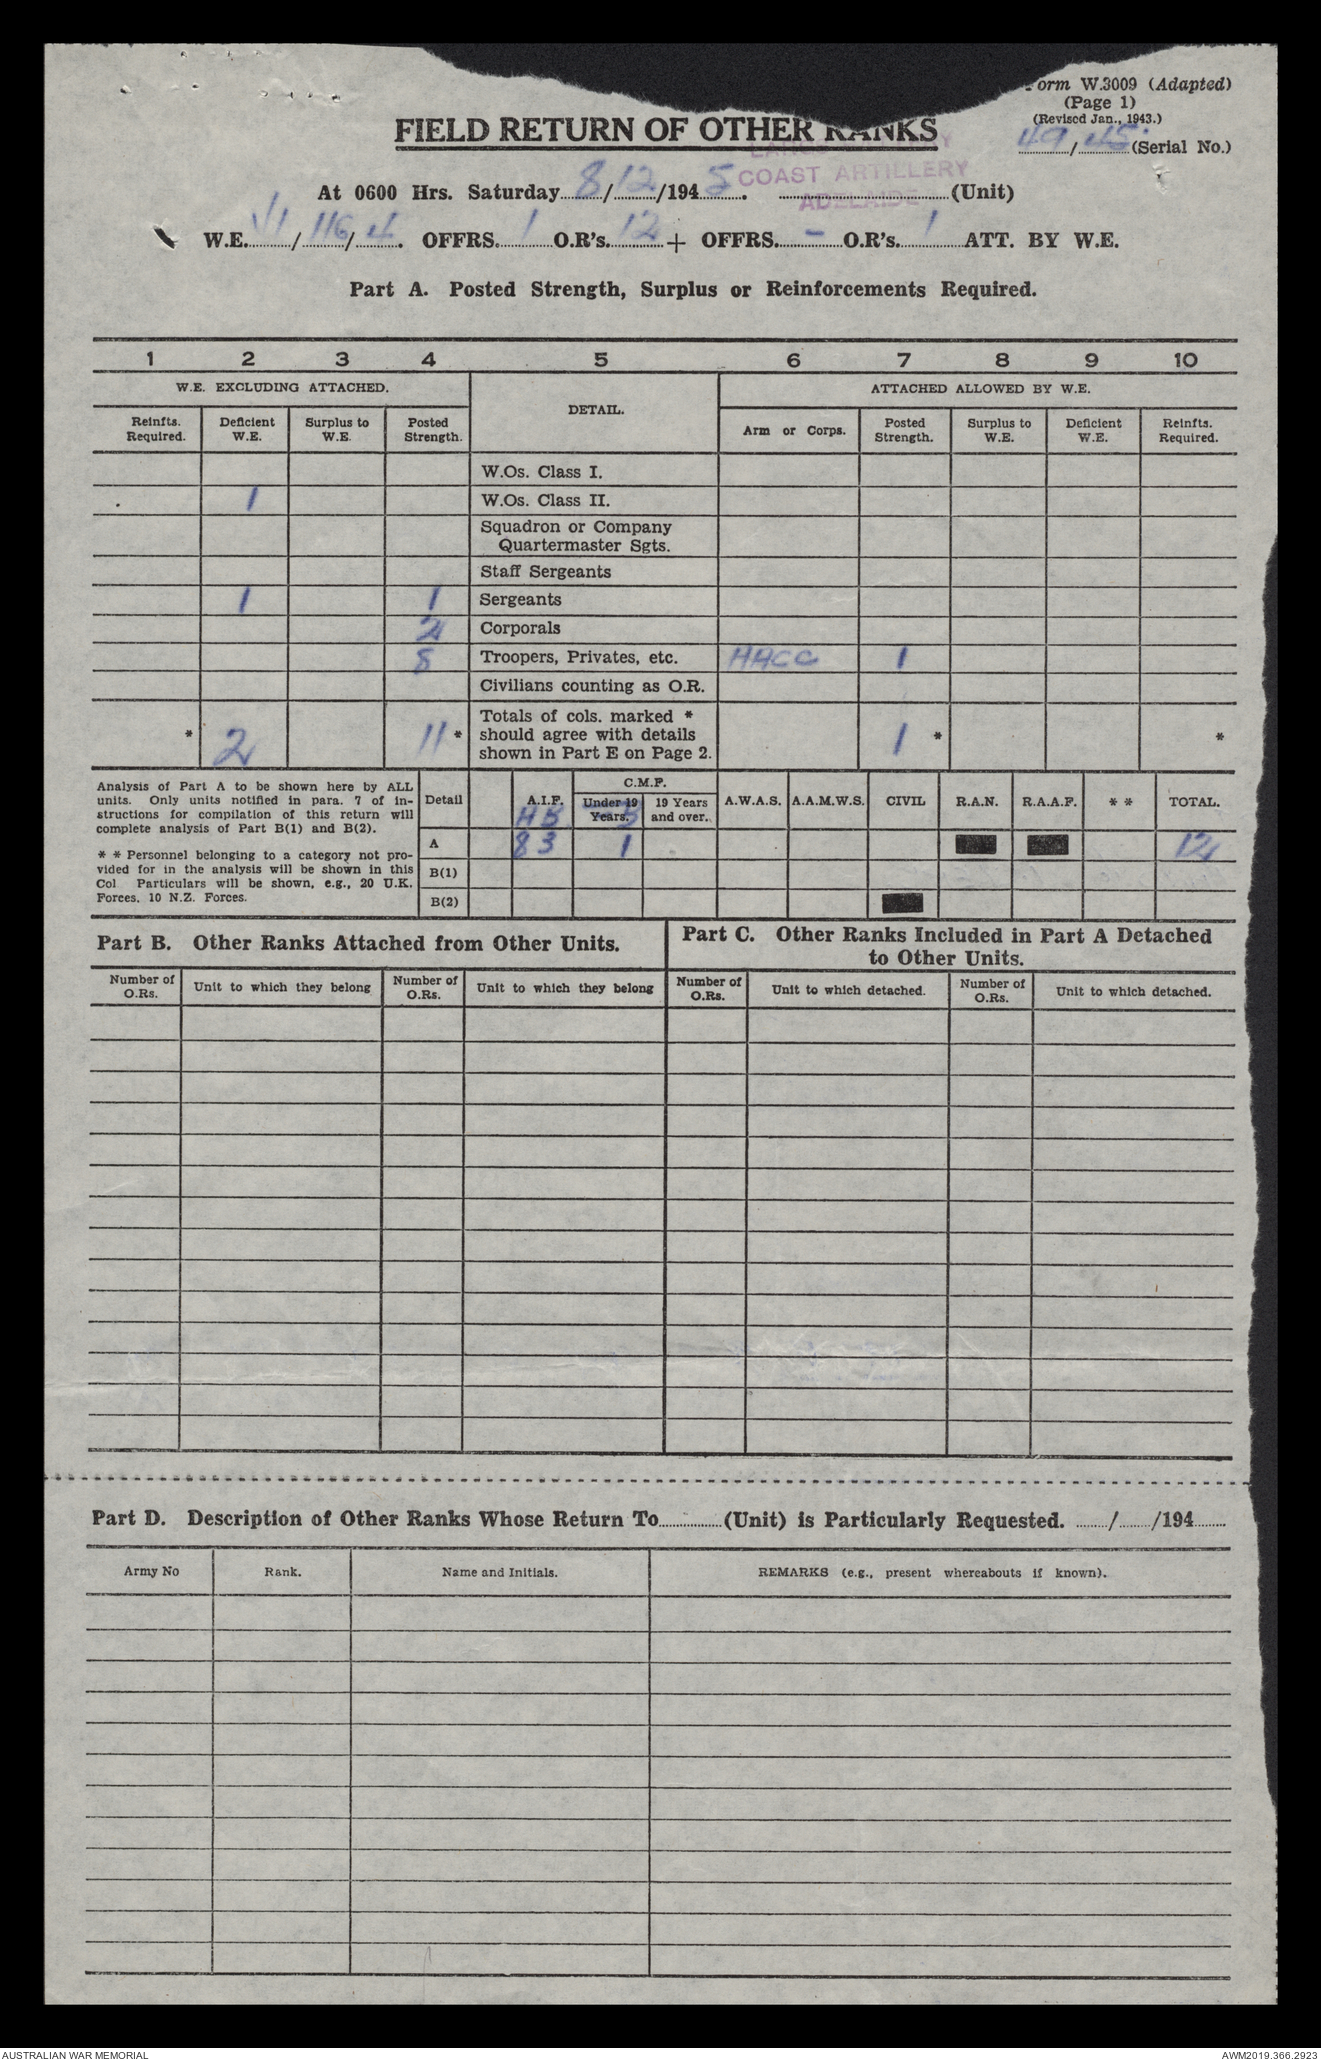 Form W.3009 (Adapted)
(Page 1)
(Revised Jan., 1943.)
49/45 (Serial No.)
FIELD RETURN OF OTHER RANKS
COAST ARTILLERY
ADELAIDE
At 0600 Hrs. Saturday 8/12/1945. (Unit)
W.E. VI/116/4. OFFRS. 1 O.R's. 12 + OFFRS. - O.R's. 1 ATT. BY W.E.
Part A. Posted Strength, Surplus or Reinforcements Required.
1 2 3 4 5 6 7 8 9 10
W.E. EXCLUDING ATTACHED. DETAIL. ATTACHED ALLOWED BY W.E.
Reinfts. Required. Deficient W.E. Surplus to W.E. Posted Strength. Arm or Corps. Posted Strength. Surplus to W.E. Deficient W.E. Reinfts. Required.
W.Os. Class I.
1 W.Os. Class II.
Squadron or Company
Quartermaster Sgts.
Staff Sergeants
1 1 Sergeants
2 Corporals
8 Troopers, Privates, etc. AACC 1
Civilians counting as O.R.
Totals of cols. marked *
* 2 11 * should agree with details 1 * *
shown in Part E on Page 2.
Analysis of Part A to be shown here by ALL
units. Only units notified in para. 7 of in-
structions for compilation of this return will
complete analysis of Part B(1) and B(2).
* * Personnel belonging to a category not pro-
vided for in the analysis will be shown in this
Col Particulars will be shown, e.g., 20 U.K.
Forces, 10 N.Z. Forces.
C.M.F.
Detail A.I.F. Under 19 Years. 19 Years and over. A.W.A.S. A.A.M.W.S. CIVIL R.A.N. R.A.A.F. * * TOTAL.
A 8 3 1 12
B(1)
B(2)
Part B. Other Ranks Attached from Other Units.
Part C. Other Ranks Included in Part A Detached
to Other Units.
Number of O.Rs. Unit to which they belong Number of O.Rs. Unit to which they belong Number of O.Rs. Unit to which detached. Number of O.Rs. Unit to which detached.
Part D. Description of Other Ranks Whose Return To (Unit) is Particularly Requested. / /194
Army No Rank. Name and Initials. REMARKS (e.g., present whereabouts if known).
AUSTRALIAN WAR MEMORIAL AWM2019.366.2923